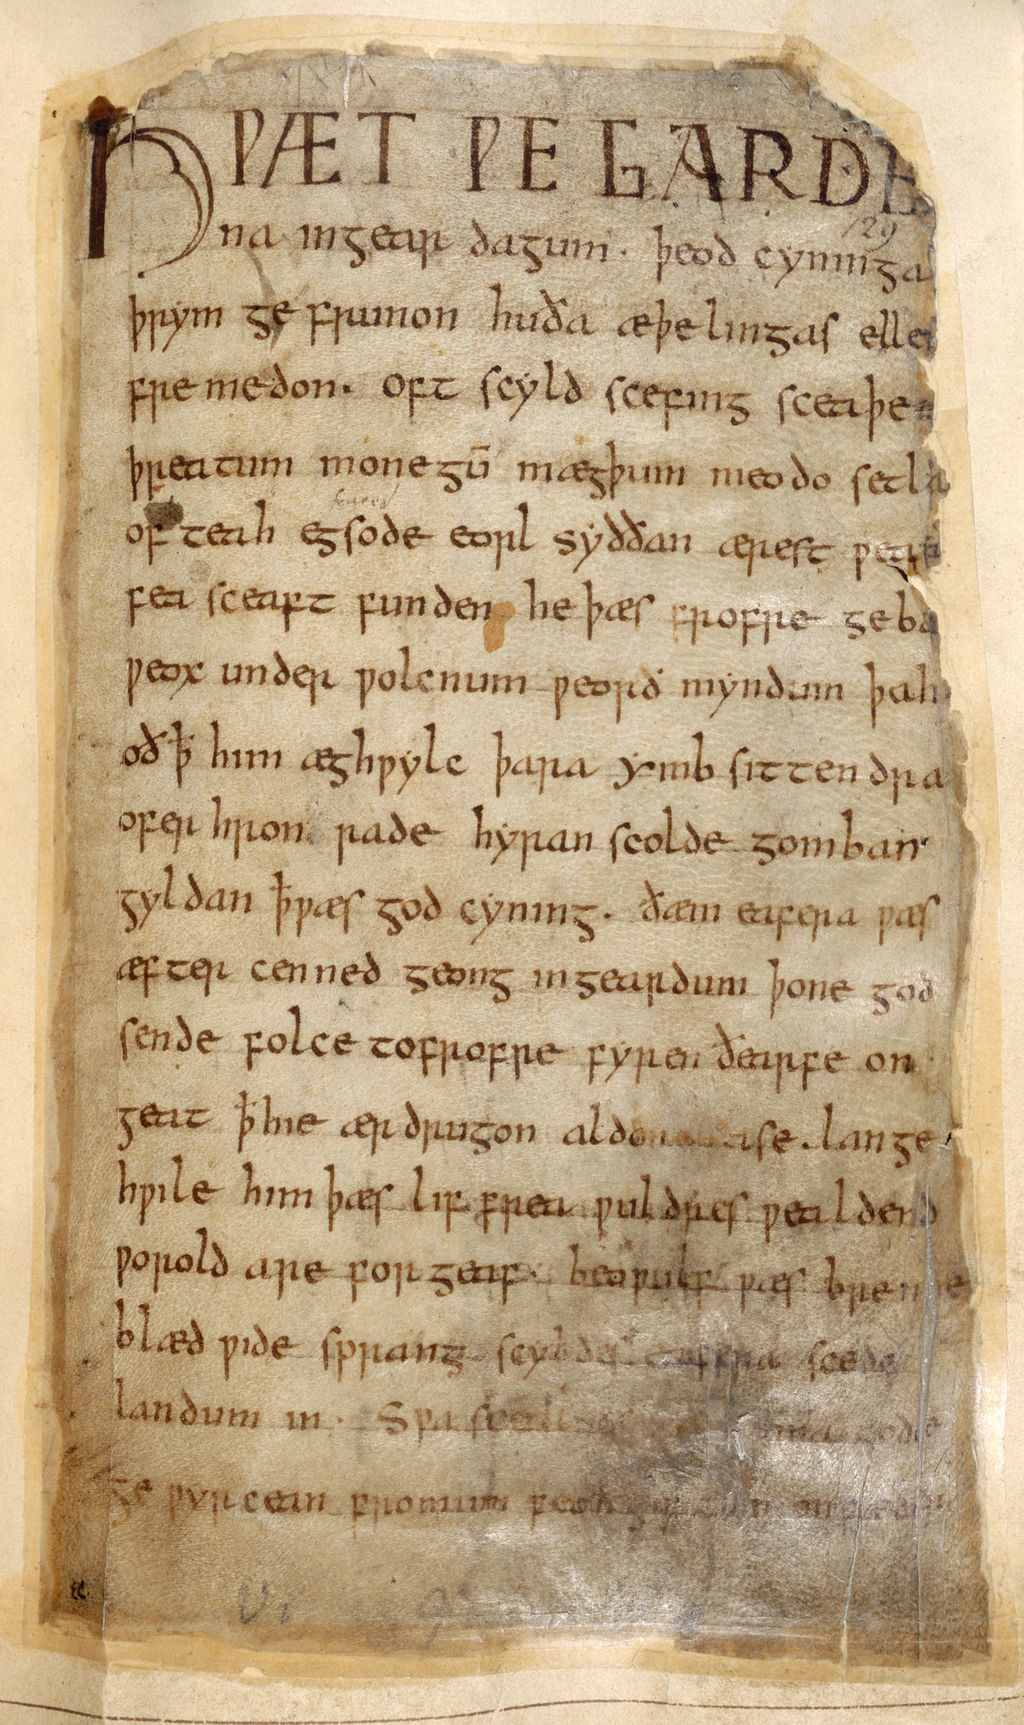 HǷÆT ǷE GARDE
na ingear dagum · þeod cyninga
þrym ge frunon huða æþelingas ellen
fremedon · oft scyld scefing sceaþe
þreatum monegū mægþum meodo setla
of teah egsode eorl syððan ærest ƿear
fea sceaft funden he þæs frofre geba
ƿeox under ƿolcnum ƿeorð myndum þah
oð ꝥ him æghƿylc þara ymb sittendra
ofer hron rade hyran scolde gomban
gyldan ꝥ ƿæs god cyning · ðæm eafera ƿæs
æfter cenned geong in geardum þone god
sende folce tofrofre fyren ðearfe on
geat ꝥ hie ær drugon aldor ase · lange
hƿile him þæs lif frea ƿuldres ƿealdend
ƿorold are for geaf · beoƿulf ƿæs breme
blæd ƿide sprang scyldes eafera scede
landum in · Sƿa guma gode
ge ƿyrcean fromum feoh giftum on fæder